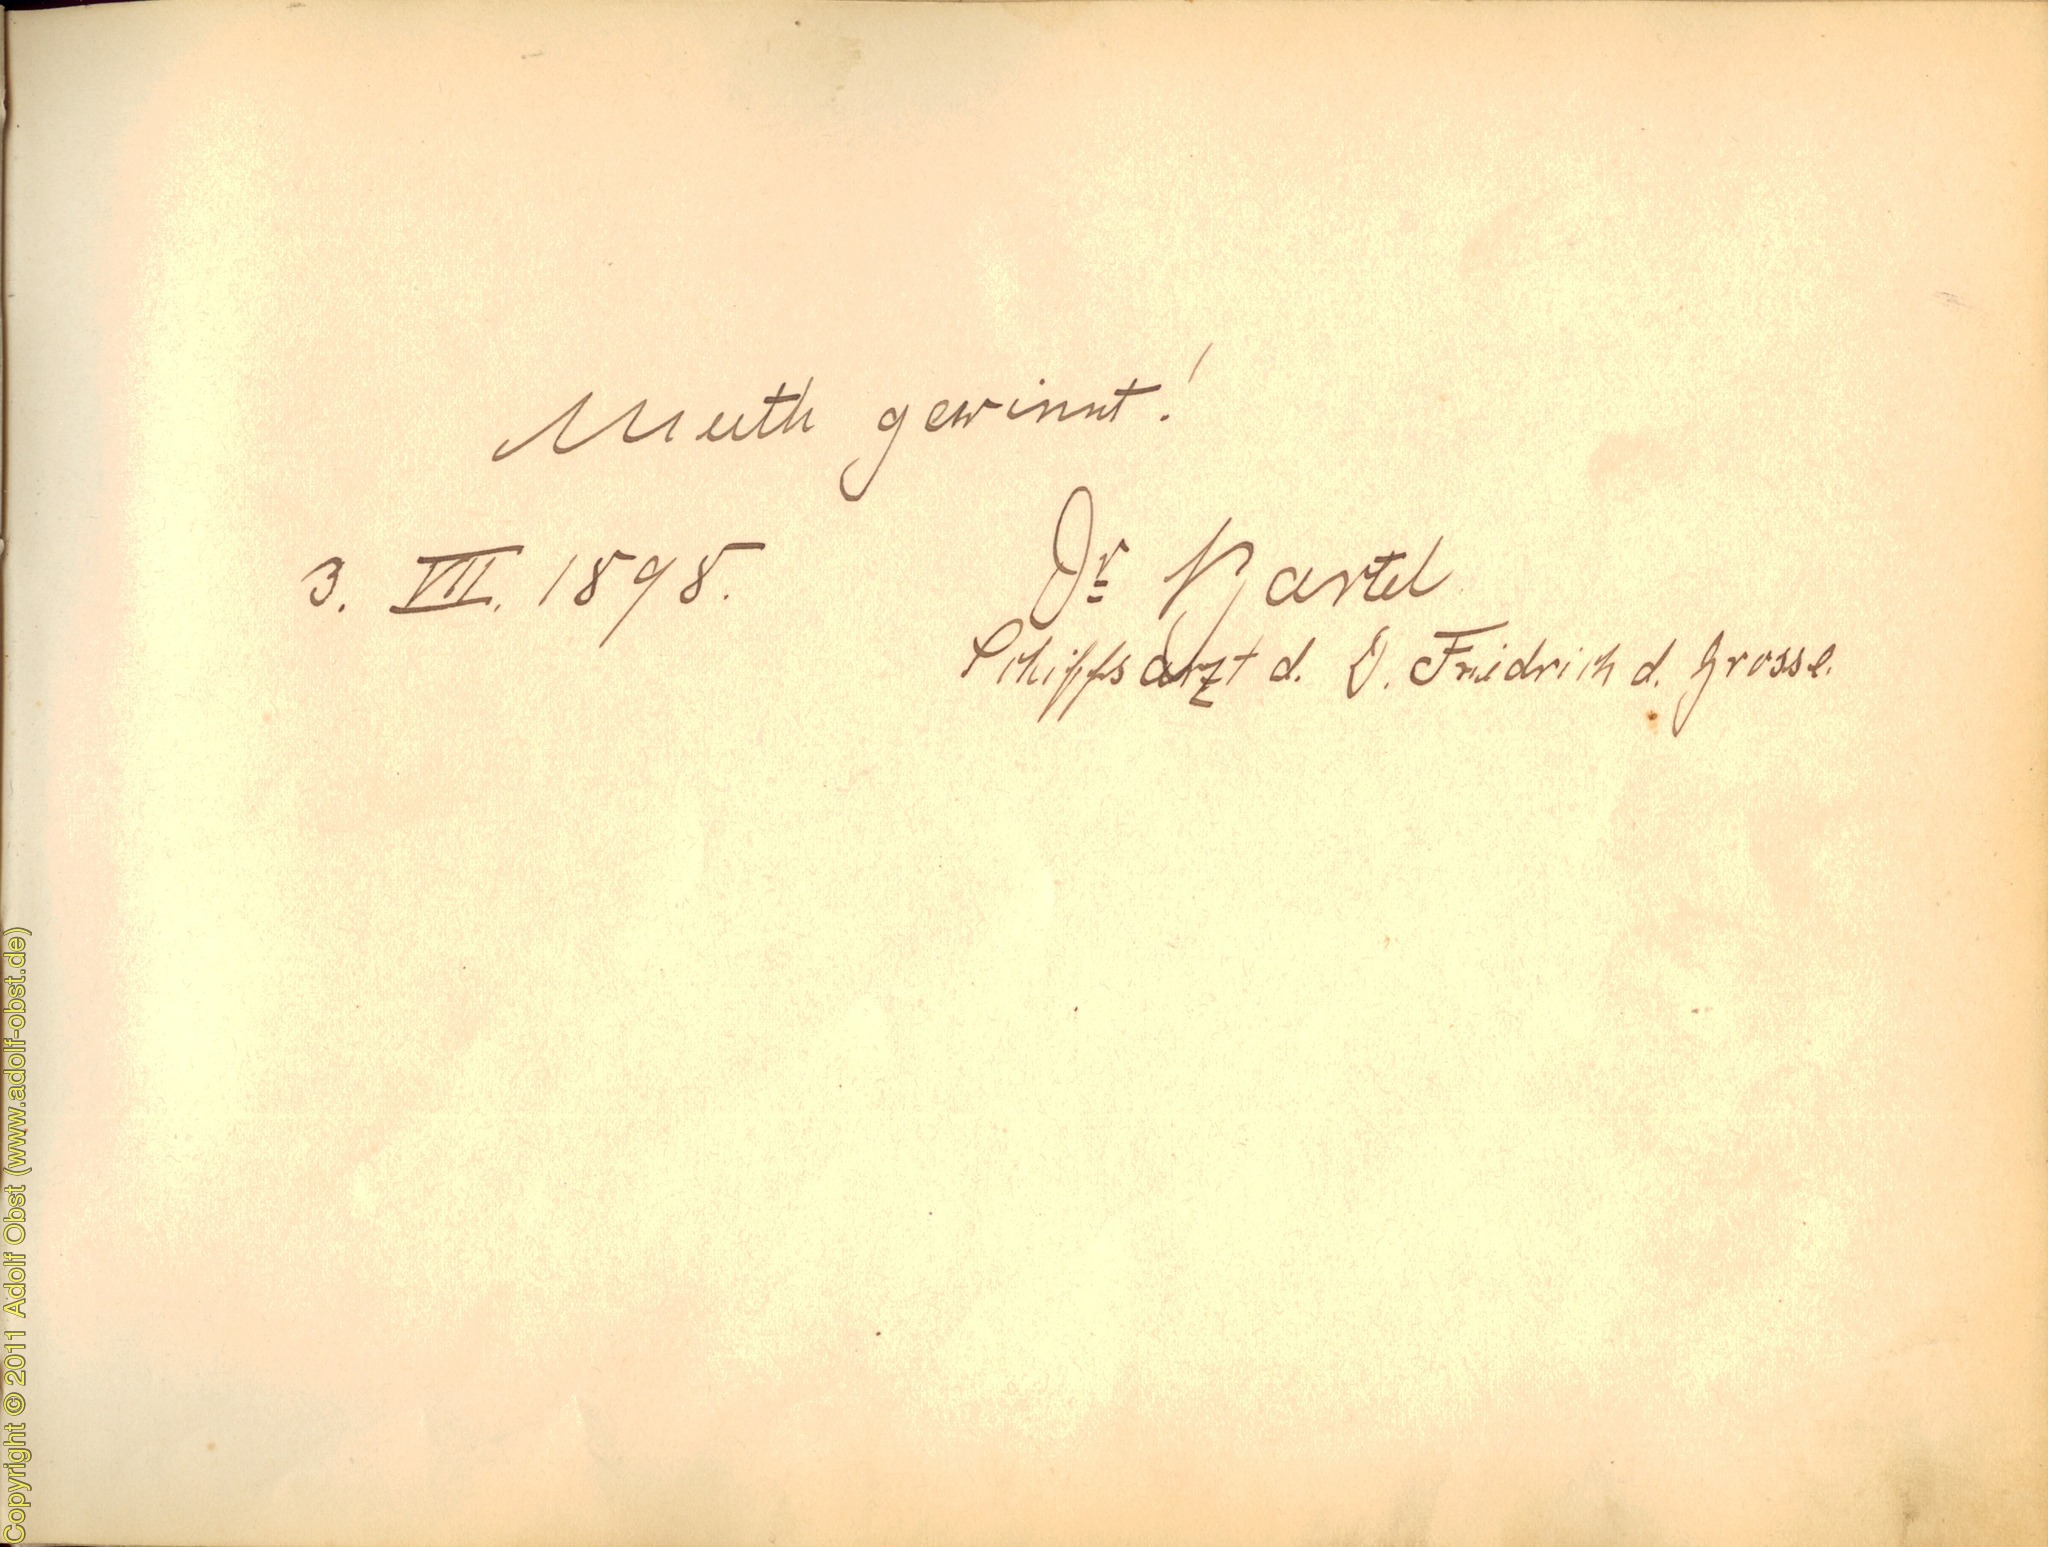 Muth gewinnt!
3. VII. 1898.
Dr Bartel
Schiffsarzt d. D. Friedrich d. Grosse.
Copyright © 2011 Adolf Obst (www.adolf-obst.de)